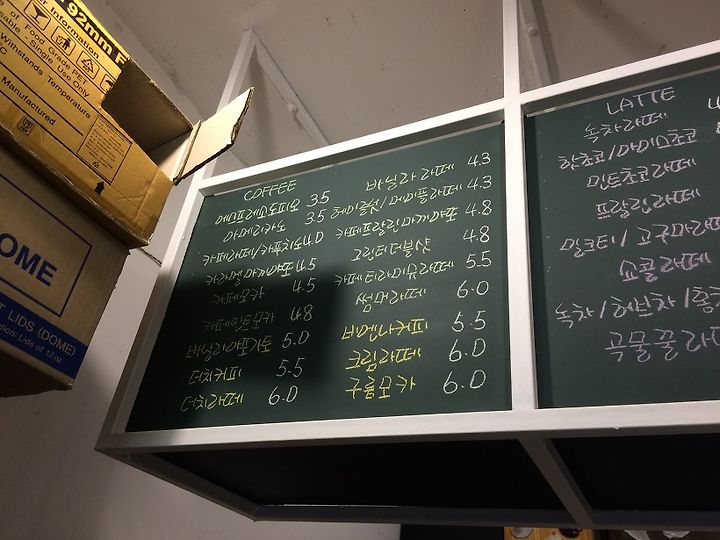 92mm F
r Information
of Food Grade PET
eable - Single Use Only
Withstands Temperature
Manufactured
OME
T LIDS (DOME)
Lids of 12 oz.
COFFEE
에스프레소도피오 3.5
아메리카노 3.5
카페라떼/카푸치노 4.0
카라멜마끼아또 4.5
카페모카 4.5
카페민트모카 4.8
바닐라아포가토 5.0
더치커피 5.5
더치라떼 6.0
바닐라라떼 4.3
헤이즐넛/메이플라떼 4.3
카페프랄린마끼아또 4.8
그린티더블샷 4.8
카페티라미뮤라떼 5.5
썸머라떼 6.0
비엔나커피 5.5
크림라떼 6.0
구름모카 6.0
LATTE
녹차라떼
핫초코/아이스초코
민트초코라떼
프랄린라떼
밀크티/고구마라떼
쇼콜라떼
녹차/허브차/홍
곡물꿀라